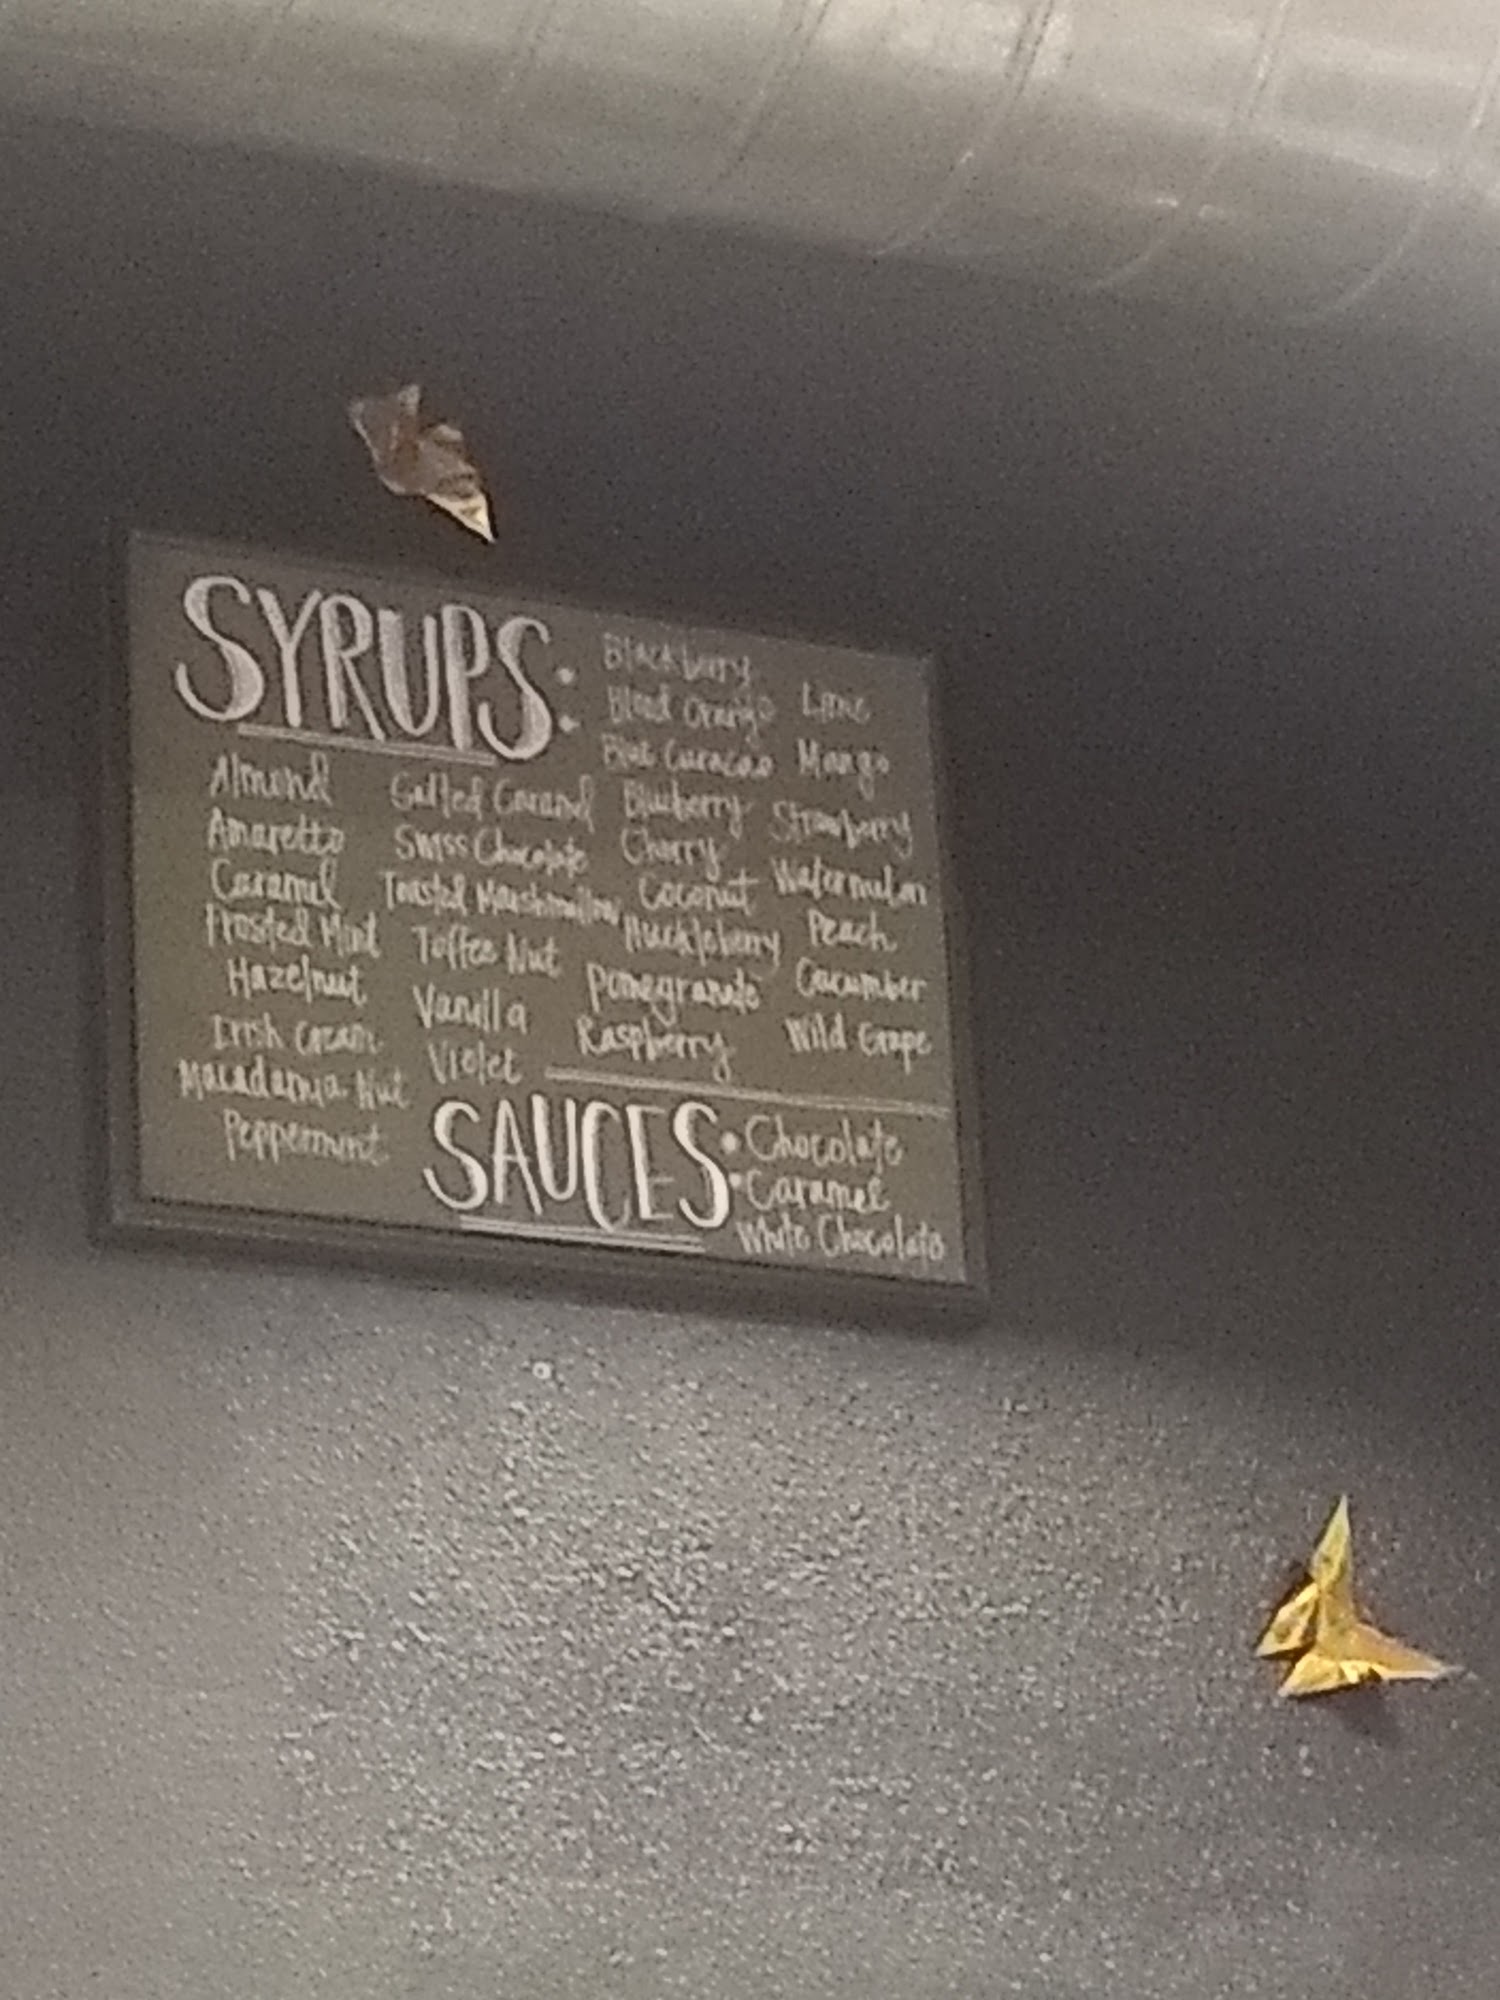 SYRUPS:
Almond
Amaretto
Caramel
Frosted Mint
Hazelnut
Irish Cream
Macadamia Nut
Peppermint
Salted Caramel
Swiss Chocolate
Toasted Marshmallow
Toffee Nut
Vanilla
Violet
Blackberry
Blood Orange
Blue Curacao
Blueberry
Cherry
Coconut
Huckleberry
Pomegranate
Raspberry
Lime
Mango
Strawberry
Watermelon
Peach
Cucumber
Wild Grape
SAUCES:
Chocolate
Caramel
White Chocolate